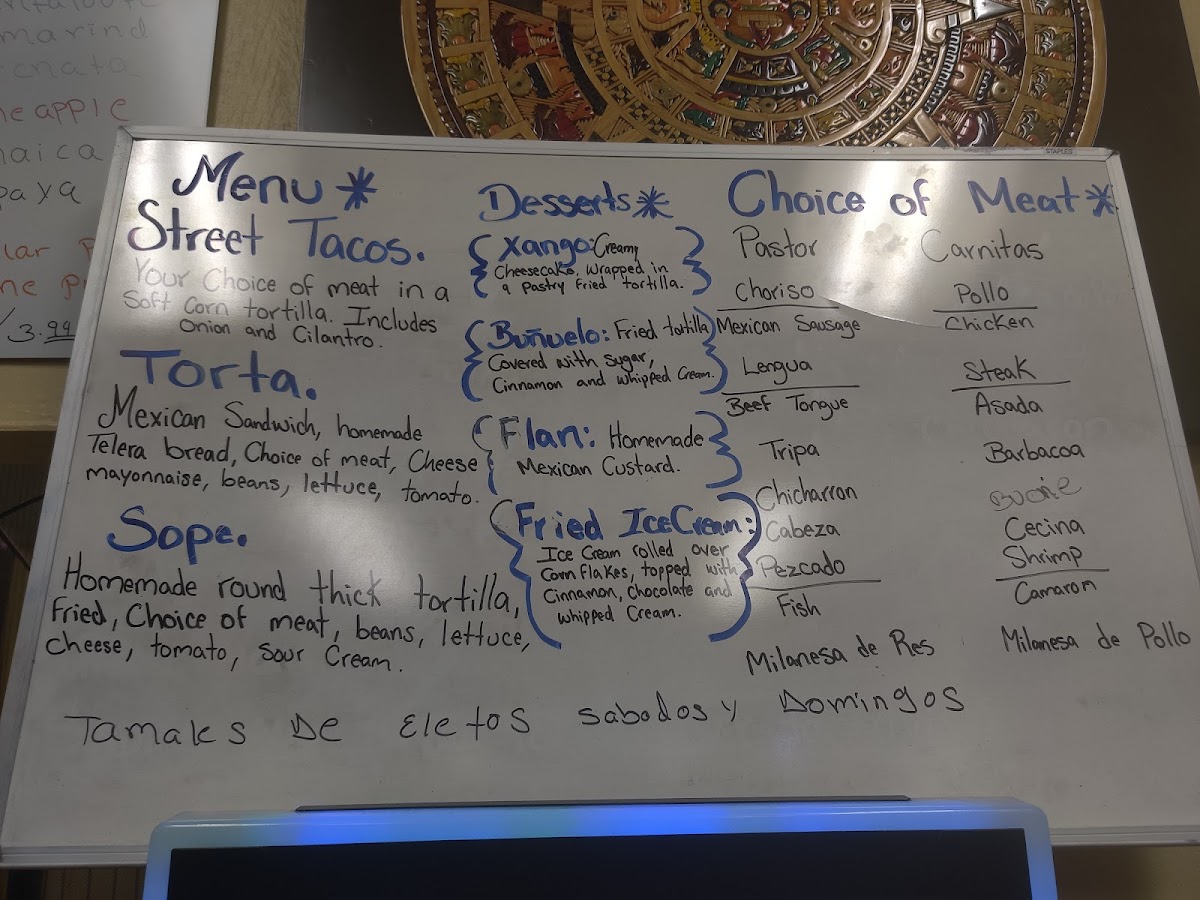 marind
neapple
aica
paya
lar
3.99
STAPLES
Menu *
Street Tacos.
Your Choice of meat in a
Soft Corn tortilla. Includes
Onion and Cilantro.
Torta.
Mexican Sandwich, homemade
Telera bread, Choice of meat, Cheese
mayonnaise, beans, lettuce, tomato.
Sope.
Homemade round thick tortilla,
Fried, Choice of meat, beans, lettuce,
Cheese, tomato, Sour Cream.
Desserts *
Xango: Creamy
Cheesecake, Wrapped in
a Pastry Fried tortilla.
Buñuelo: Fried tortilla
Covered with sugar,
Cinnamon and whipped Cream.
Flan: Homemade
Mexican Custard.
Fried Ice Cream:
Ice Cream rolled over
Corn Flakes, topped with
Cinnamon, chocolate and
whipped Cream.
Choice of Meat *
Pastor
Choriso
Mexican Sausage
Lengua
Beef Tongue
Tripa
Chicharron
Cabeza
Pezcado
Fish
Milanesa de Res
Carnitas
Pollo
Chicken
Steak
Asada
Barbacoa
Cecina
Shrimp
Camarom
Milanesa de Pollo
Tamales De Eletos Sabodos y Domingos